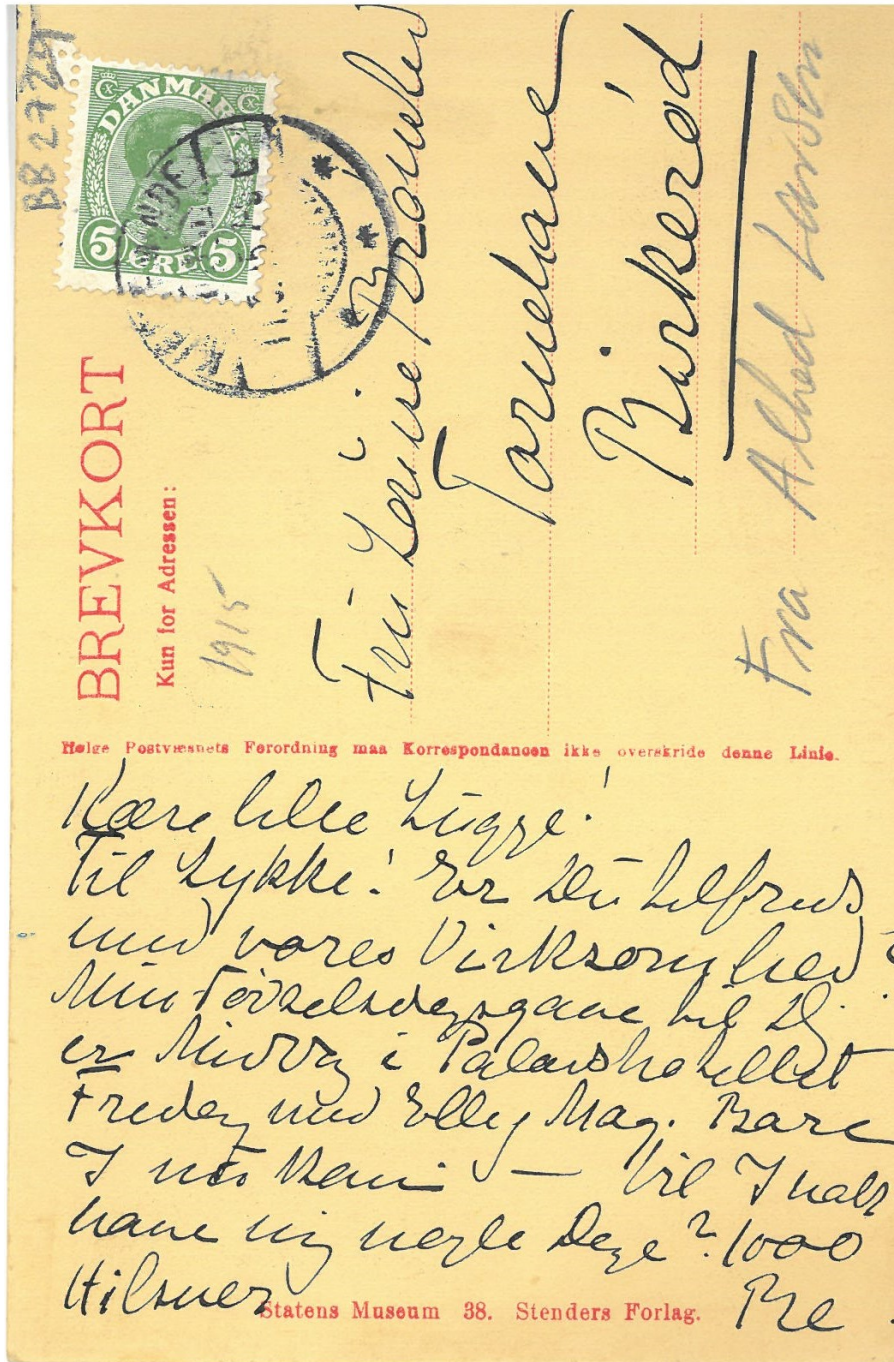 BB 2727
DANMARK
5 ØRE 5
BREVKORT
Kun for Adressen:
1915
Fru Louise Brønsted
Tornehave
Birkerød
Fra Alhed Larsen
Ifølge Postvæsnets Forordning maa Korrespondancen ikke overskride denne Linie.
Kære lille Lugge!
Til Lykke! Er Du tilfreds
med vores Virksomhed?
Min Fødselsdagsgave til Dig
er Middag i Palacehotellet
Fredag med Elle, Mag. Bare
I nu kan — Vil I nok
have mig nogle Dage? 1000
Hilsner
Be
Statens Museum 38. Stenders Forlag.